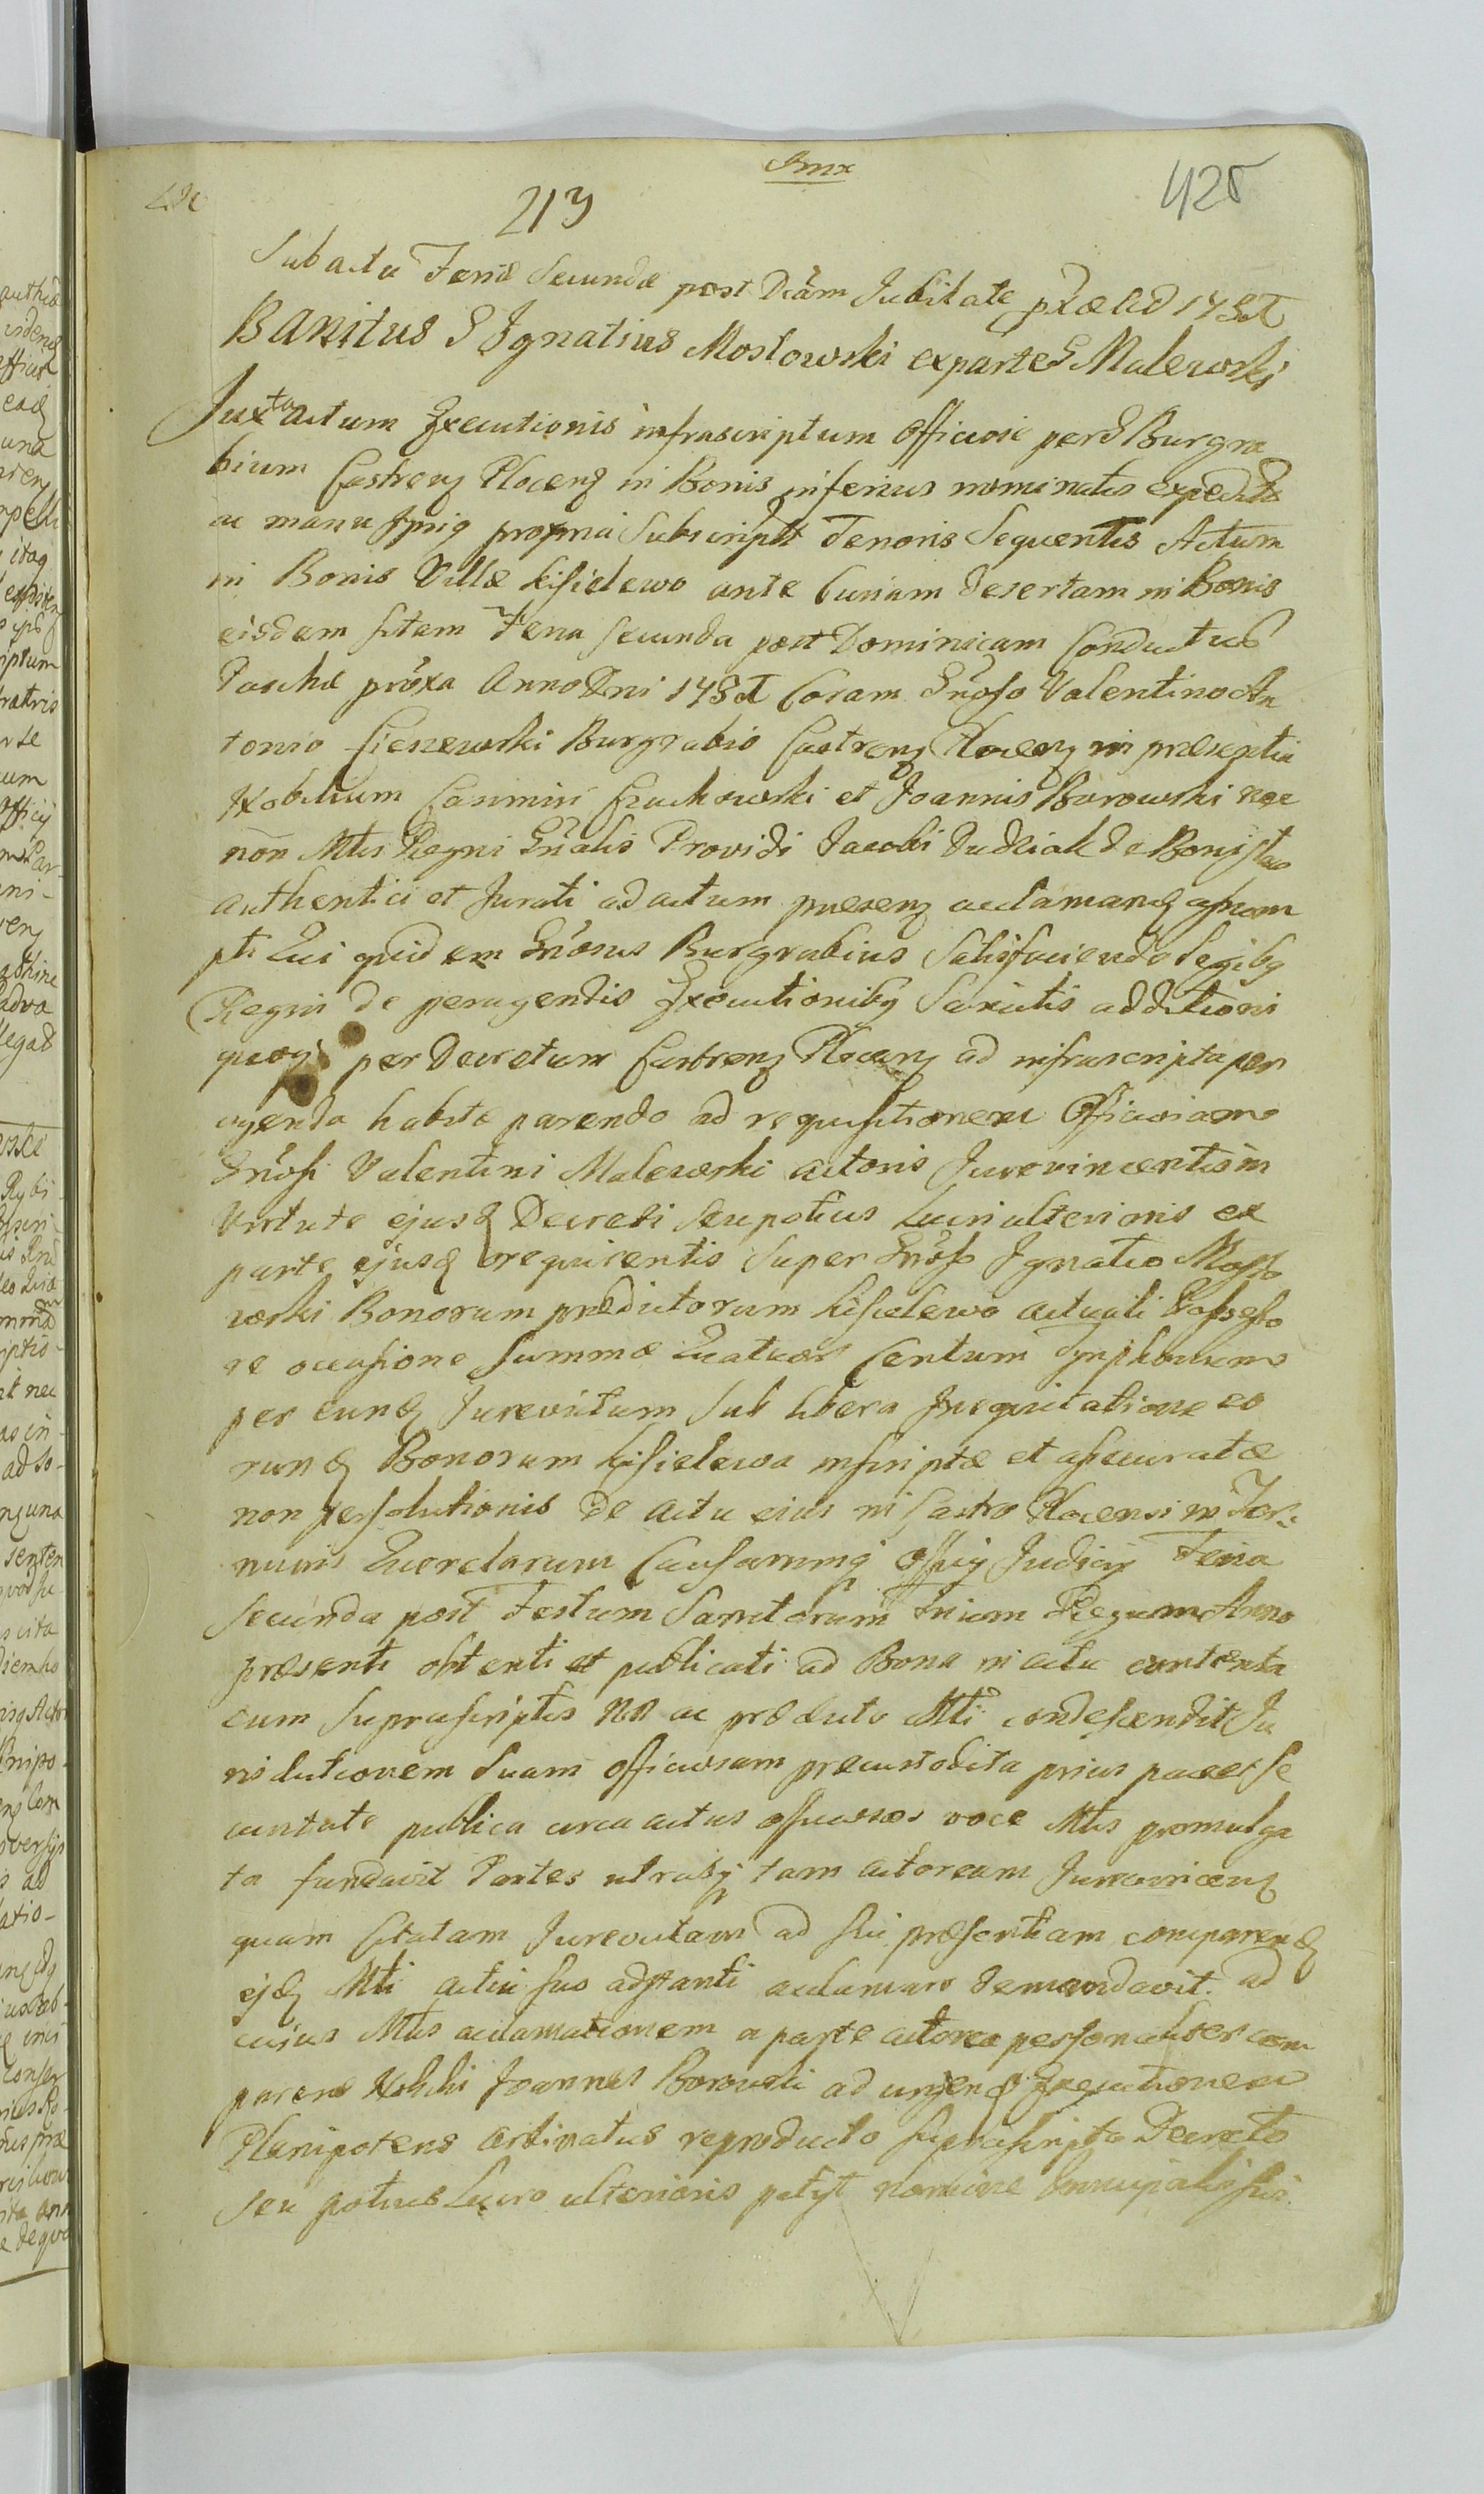 213
425
Sub actu Feriæ Secundæ post Dnicam Jubilate
Banitus G Ignatius Mostowski ex parte G Malewski
Juxta actum Executionis infrascriptum Officiose per G Burgra
bium Castrens Plocens in Bonis inferius nominatis expedit
ac manu Ipsius propria Subscript Tenoris Sequentis Actum
in Bonis Villæ Kisielewo ante Curiam desertam in Bonis
eisdem sitam Feria Secunda post Dominicam Conductus
Paschæ proxa Anno Dni Coram Gnoso Valentino An
tonio Burgrabio Castrens Plocens in præsentia
Nobilium Casimiri Czachowski et Joannis Borowski nec
non Mtis Regni Gnalis Providi Jacobi de Boni
authentici et Jurati ad actum præsens acclamand assum
pti Qui quidem Gnosus Burgrabius Satisfaciendo Legibq
Regni de peragendis Executionibq Sancitis additioni
quoq per Decretum Castrens Plocens ad infrascripta per
agenda habitæ parendo ad requisitionem Officiosam
Gnosi Valentini Malewski actoris Jurevincentis in
Virtute ejusd Decreti seu potius Lucri ulterioris ex
parte ejusd requirentis Super Gnoso Ignatio Mosto
wski Bonorum prædictorum Kisielewo actuali Possesso
re occasione Summæ Quatuor Centum Tynphorum
per eund Jurevictum Sub libera Inequitatione eo
rund Bonorum Kisielewo inscriptæ et assecuratæ
non persolutionis de actu eius in Castro Plocensi in Ter
minis Querelarum Causarumq Offcij Judicij Feria
Secunda post Festum Sanctorum Trium Regum Anno
præsenti obtenti et publicati ad Bona in actu contenta
cum Suprascriptis NN ac prædicto Mti condescendit Ju
risdictionem Suam officiosam præcustodita prius pace et se
curitate publica circa actus officiosos voce Mtis promulga
ta fundavit Partes utrasq tam actoream Jurevincens
quam Citatam Jurevictam ad sui præsentiam comparend
ejd Mti actui suo adstanti acclamare demandavit ad
cujus Mtis acclamationem a parte actorea personaliter com
parens Nobilis Joannes Borowski ad urgend Executionem
Plenipotens ordinatus reproducto suprascripto Decreto
seu potius Lucro ulterioris petyt nomine Principalis sui